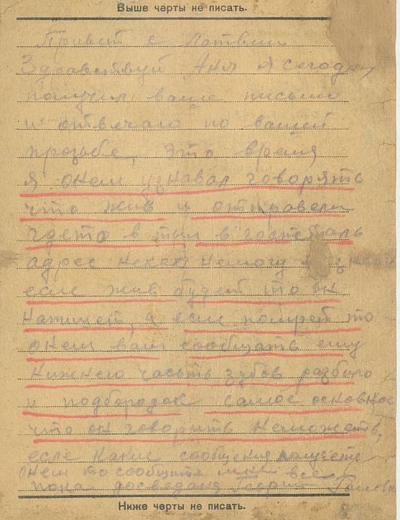 Выше черты не писать.
Привет с Латвии
Здравствуй Аня Я сегодня
получил ваше письмо
и отвечаю по вашей
прозьбе, это время
я онем узнавал говорять
что жив и отправели
гдето в тыл в госпеталь
адрес некак немогу
если жив будет то он
напишет, а если помрет то
онем вам сообщать ему
нижнею часьть зубов разбило
и подбородок самое основное
что он говорить неможеть,
если какие сообщения получете
онем то сообщите мне
пока досведаня Георгий
Ниже черты не писать.